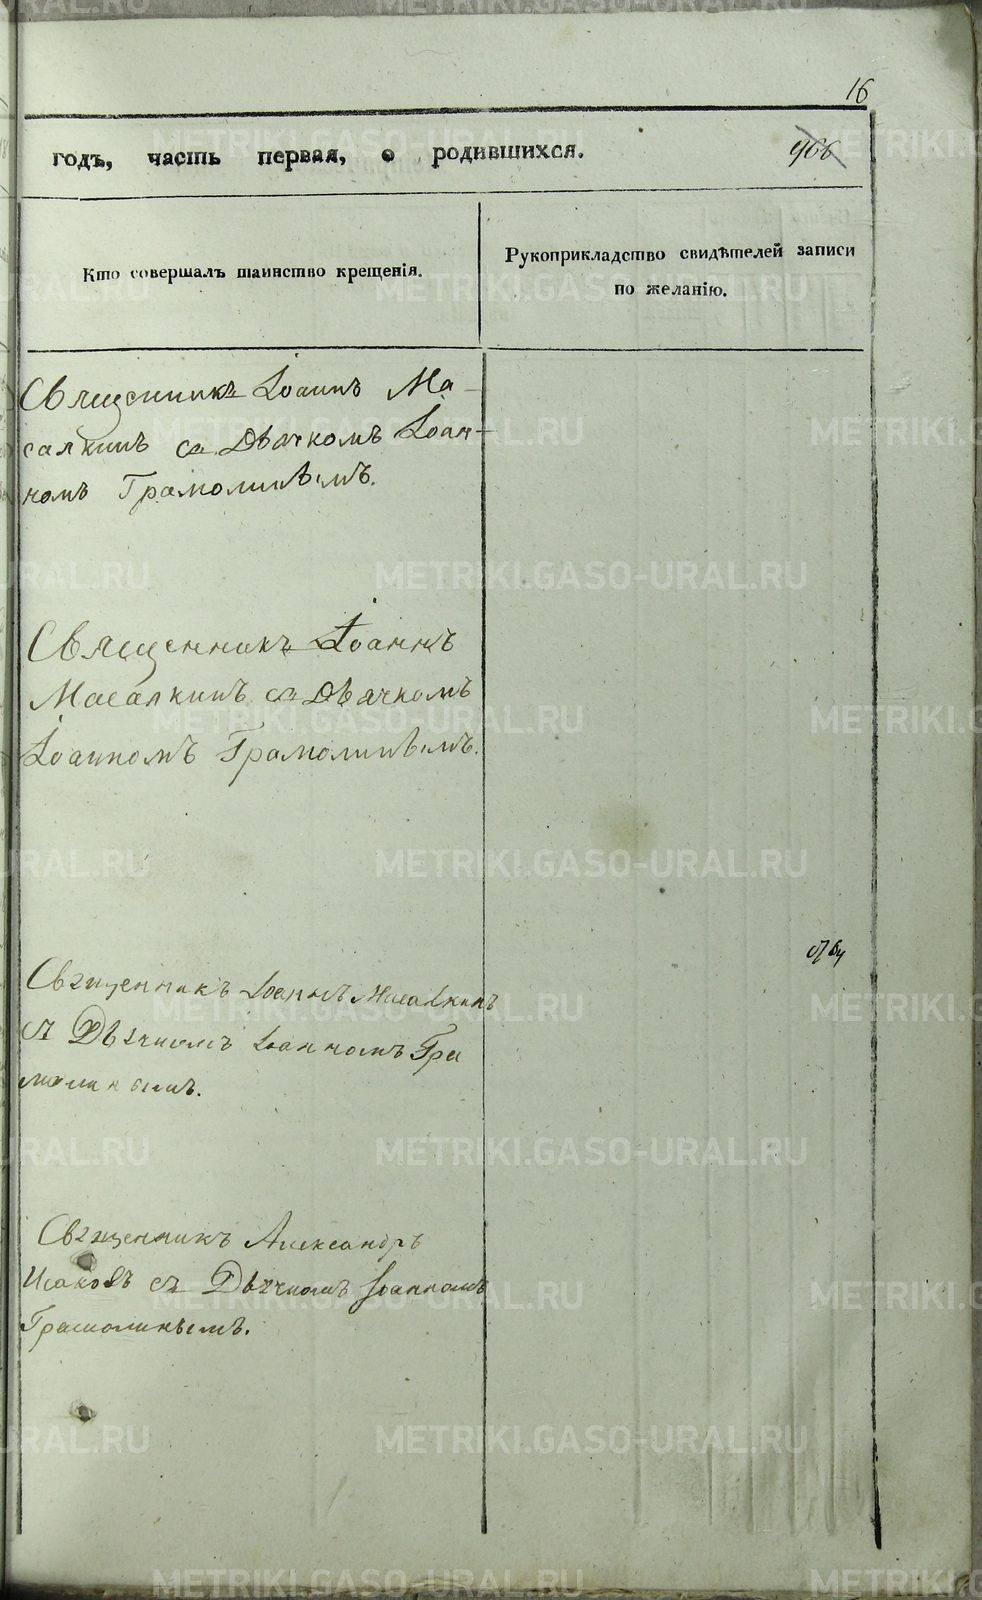 16
годъ, часть первая, о родившихся.
966
Кто совершалъ таинство крещенія.
Рукоприкладство свидѣтелей записи
по желанію.
Священникъ Іоаннъ Ма-
салкинъ съ Дьячкомъ Іоан-
номъ Грамолинымъ.
Священникъ Іоаннъ
Масалкинъ съ Дьячкомъ
Іоанномъ Грамолинымъ.
Священникъ Іоаннъ Масалкинъ
съ Дьячкомъ Іоанномъ Гра
молинымъ.
Священникъ Александръ
Исаковъ съ Дьячкомъ Іоанномъ
Грамолинымъ.
METRIKI.GASO-URAL.RU